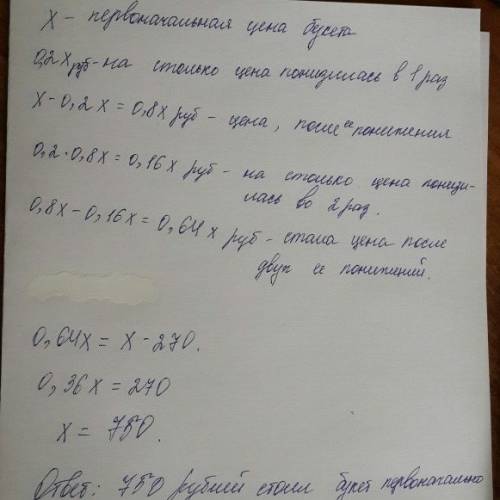 x - первоначальная цена букета
0,2x руб - на столько цена понизилась в 1 раз
x - 0,2x = 0,8x руб - цена, после ее понижения
0,2·0,8x = 0,16x руб - на столько цена понизи-
лась во 2 раз.
0,8x - 0,16x = 0,64x руб - стала цена после
двух ее понижений.
0,64x = x - 270.
0,36x = 270
x = 750.
Ответ: 750 рублей стоил букет первоначально